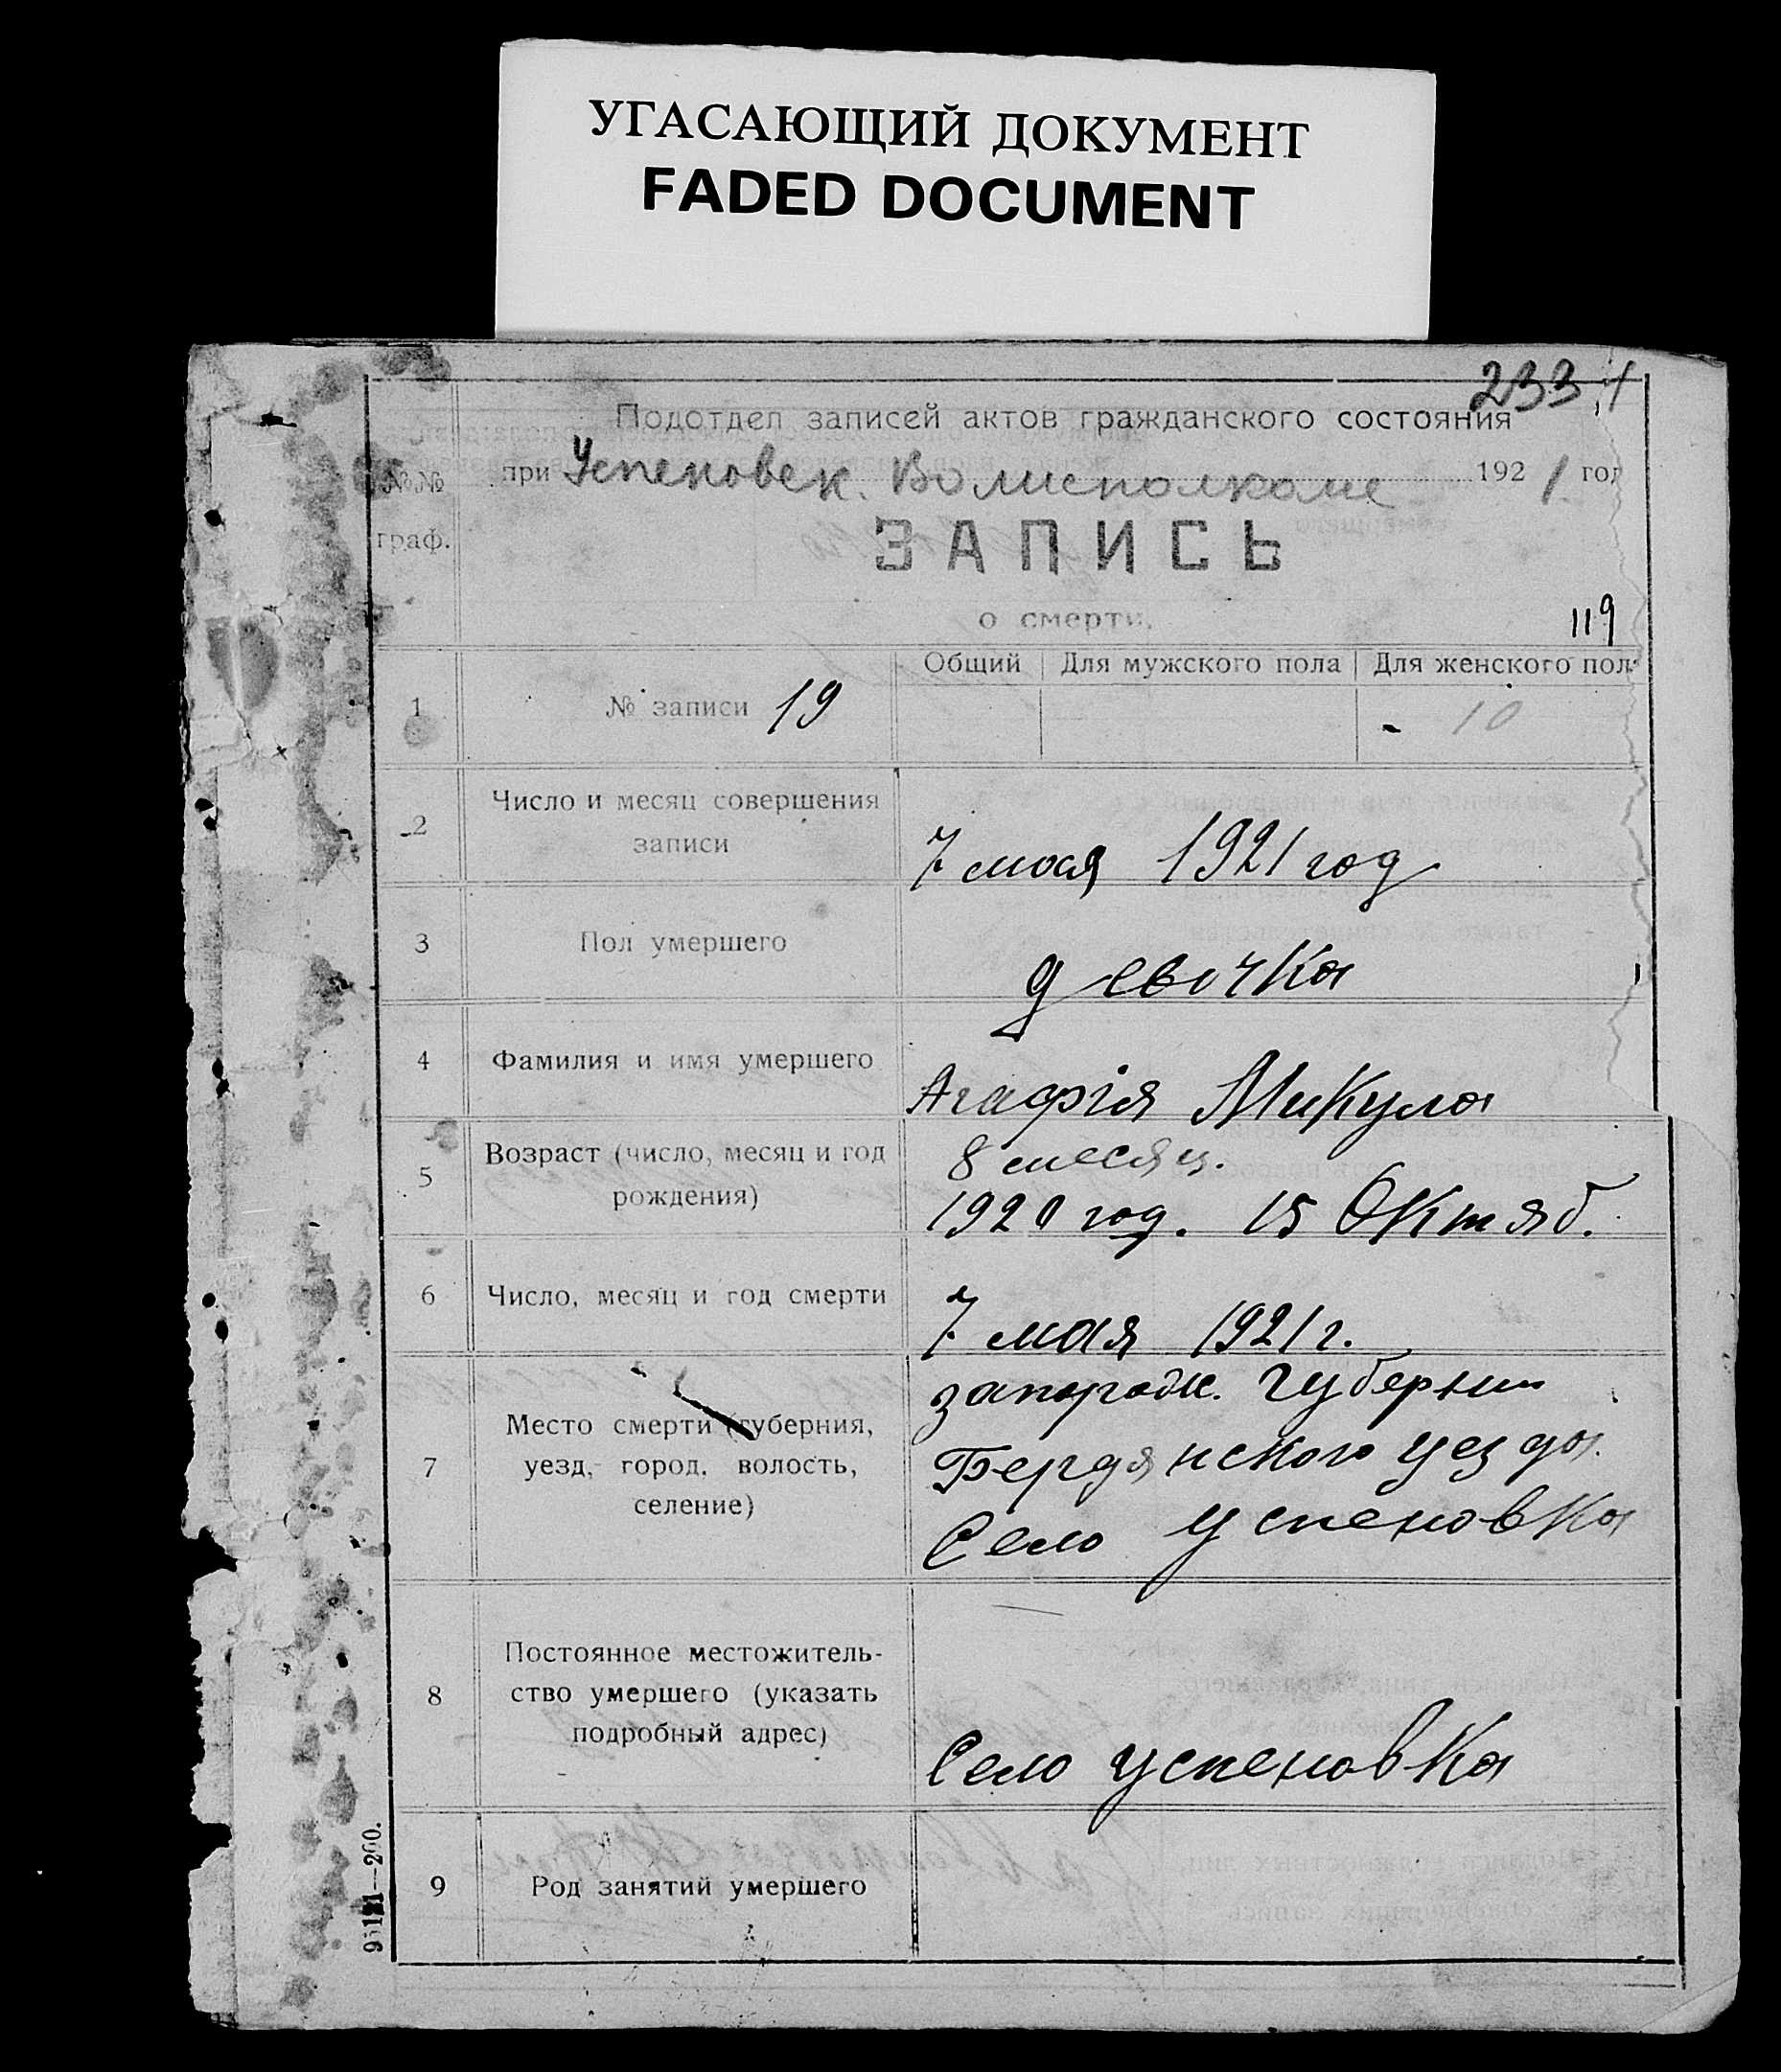 УГАСАЮЩИЙ ДОКУМЕНТ
FADED DOCUMENT
233
Подотдел записей актов гражданского состояния
№№ граф.
при Успеновск. Волисполкоме 1921 год
ЗАПИСЬ
о смерти.
119
Общий Для мужского пола Для женского пол
1 № записи 19 - 10
2 Число и месяц совершения
записи
7 мая 1921 год
3 Пол умершего девочка
4 Фамилия и имя умершего Агафія Микула
5 Возраст (число, месяц и год
рождения)
8 месяц.
1920 год. 15 Октяб.
6 Число, месяц и год смерти 7 мая 1921 г.
7 Место смерти (губерния,
уезд, город, волость,
селение)
Губернии
Бердянского уезда.
Село Успеновка
8 Постоянное местожитель-
ство умершего (указать
подробный адрес)
Село Успеновка
9 Род занятий умершего